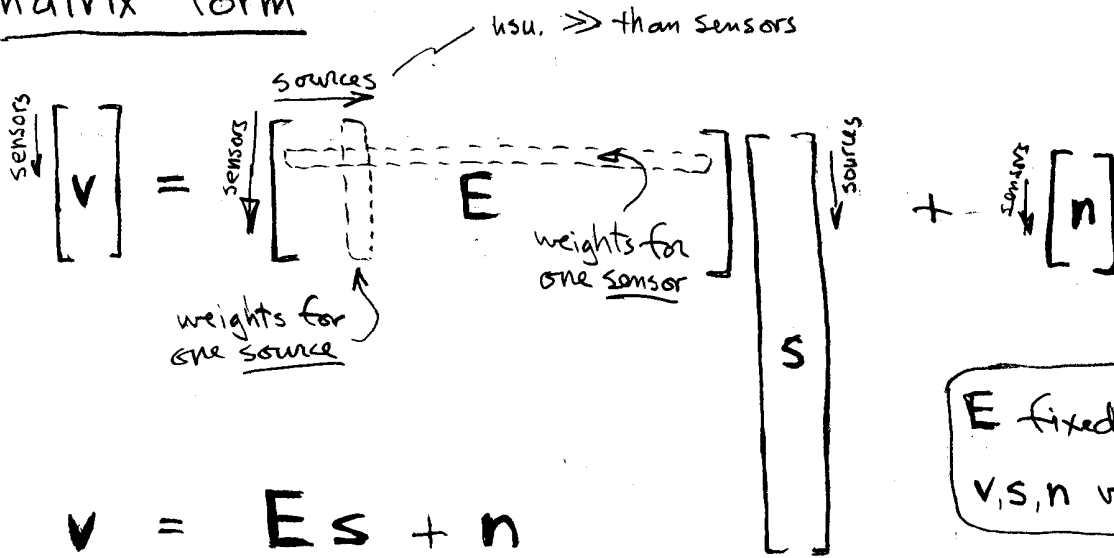 matrix form
usu. >> than sensors
sources
sensors
sensors
sources
sensors
[v] = [E] [s] + [n]
weights for
one sensor
weights for
one source
E fixed
v, s, n
v = Es + n